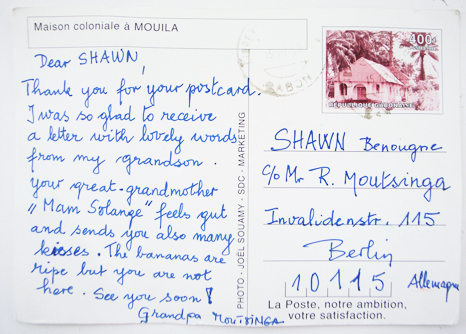 Maison coloniale à MOUILA
Dear SHAWN,
Thank you for your postcard.
I was so glad to receive
a letter with lovely words
from my grandson.
your great-grandmother
"Mam Solange" feels gut
and sends you also many
kisses. The bananas are
ripe but you are not
here. See you soon!
Grandpa MOUTSINGA
PHOTO - JOËL SOUAMY - SDC - MARKETING
400F
RÉPUBLIQUE GABONAISE
SHAWN Benougne
c/o Mr R. Moutsinga
Invalidenstr. 115
Berlin
10115 Allemagne
La Poste, notre ambition,
votre satisfaction.